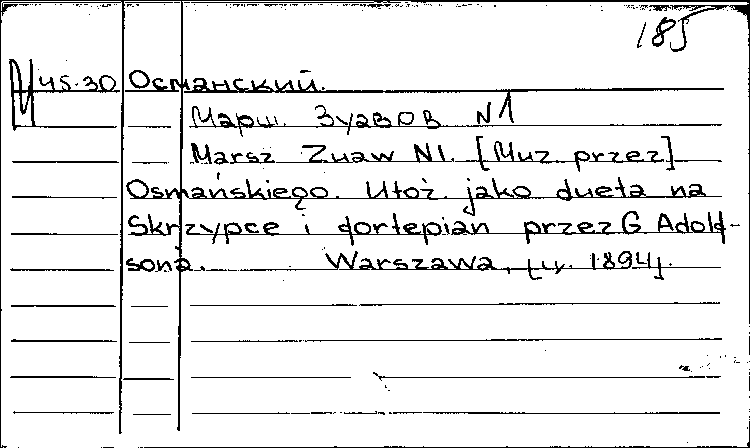 185
М 45.30 Османский.
Марш. Зуавов N1
Marsz Zuaw N1. [Muz. przez]
Osmańskiego. Ułoż. jako dueta na
Skrzypce i fortepian przez G. Adolf-
sona. Warszawa, [ц. 1894].